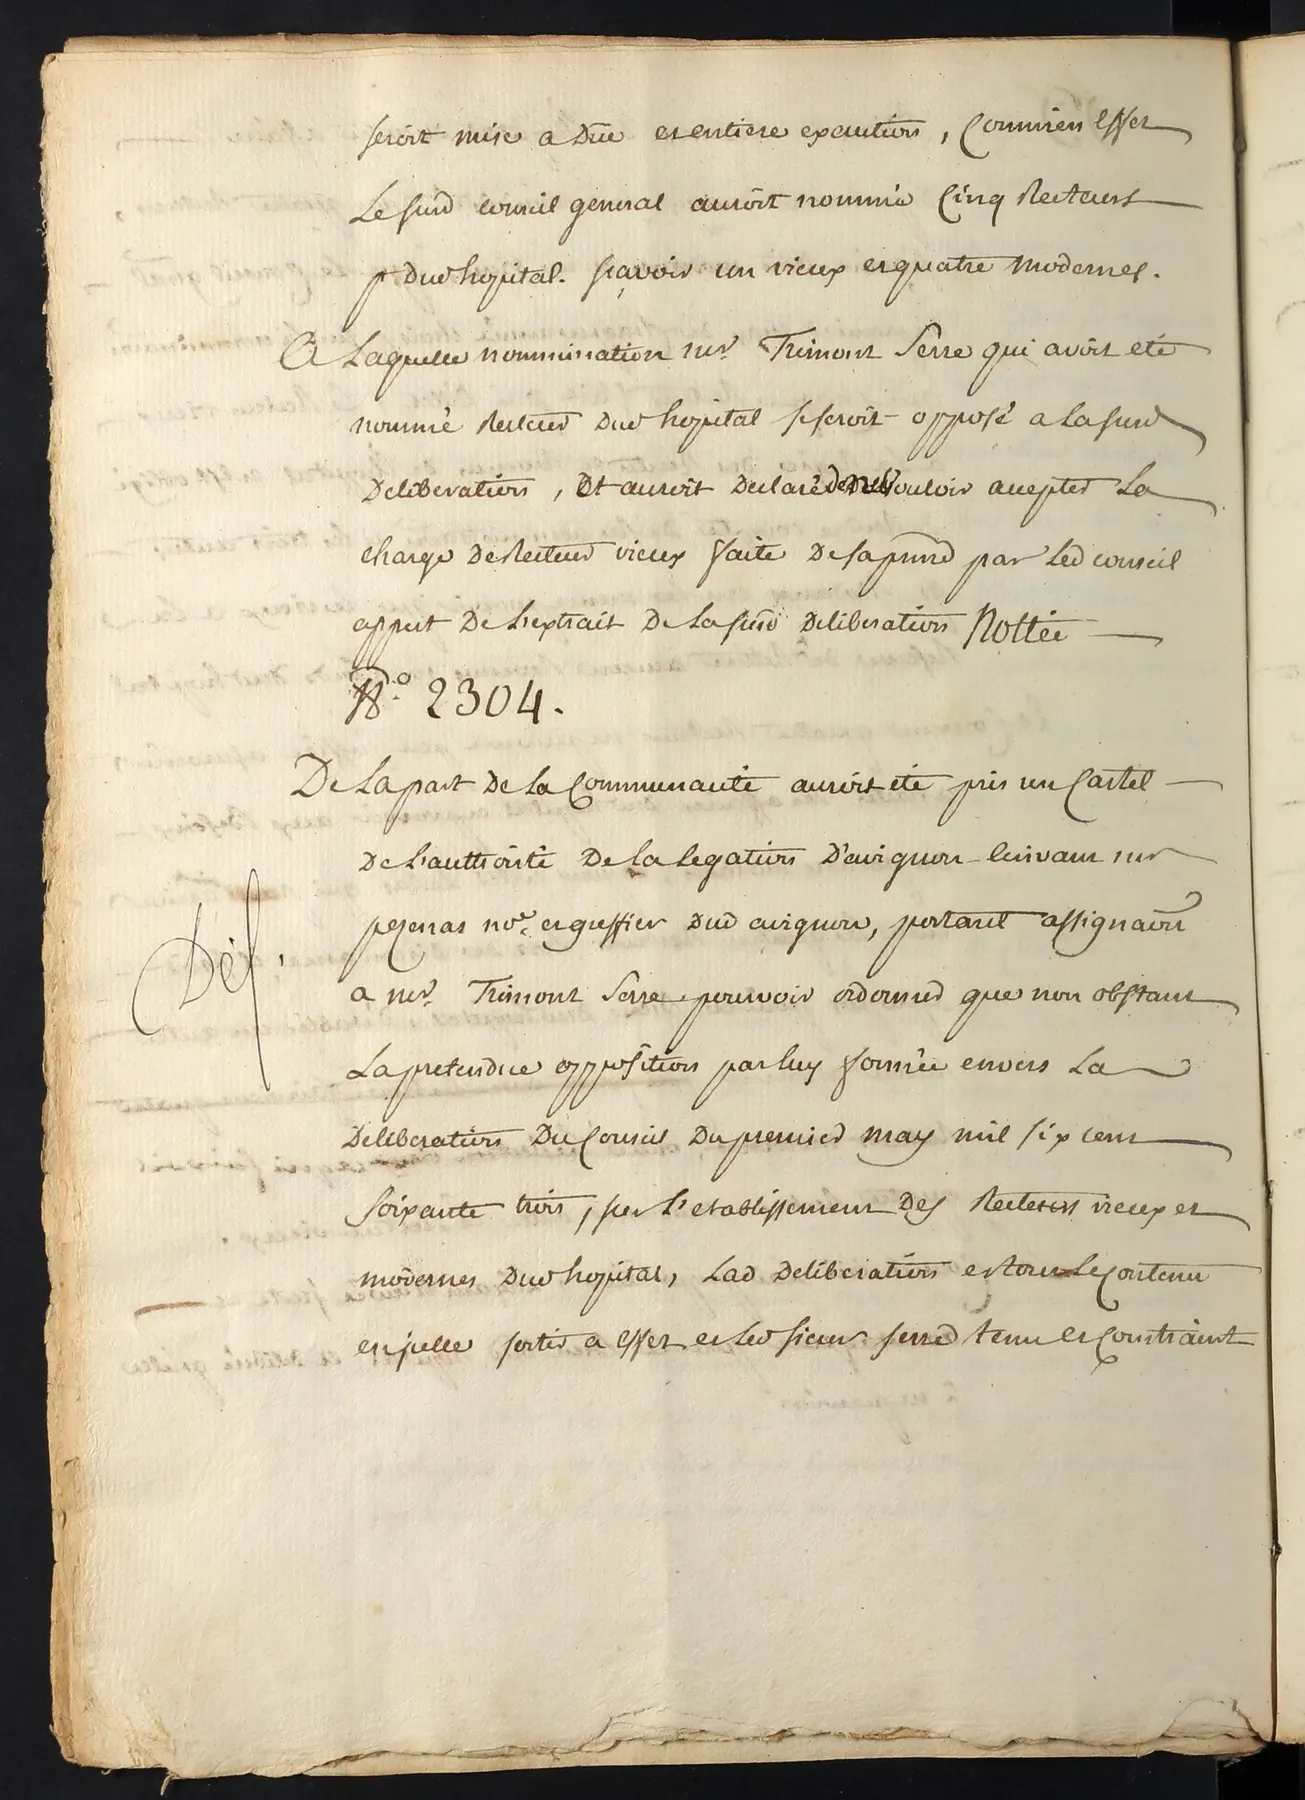 seroit mise a Düe et entiere execution, Comm'en Effet
Le susd conseil general auroit nommé Cinq Recteurs
pr Dud hopital. sçavoir un vieux et quatre modernes.
A Laquelle nommination mr. Trimont Serre qui avoit eté
nommé Recteur Dud hopital se seroit opposé a La susd
Deliberation, Et auroit Declaré de ne Vouloir accepter La
charge De Recteur vieux faite De sa pnne par Led conseil
appert De L'extrait De La susd Deliberation Nottée
No. 2304.
De La part De La Communauté auroit eté pris un Cartel
De L'authorité De La Legation D'avignon Ecrivant mr
pezenas nore. et greffier Dud avignon, portant assignaon
a mr. Trimont Serre pour voir ordonner que non obstant
La pretendue opposition par luy formée envers La
Del.
Deliberation Du Conseil Du premier may mil six cent
soixante trois, sur L'etablissement Des Recteurs vieux et
modernes Dud hopital, Lad Deliberation et tout Le Contenu
en jcelle sortir a Effet et Led sieur serre tenu et Constraint